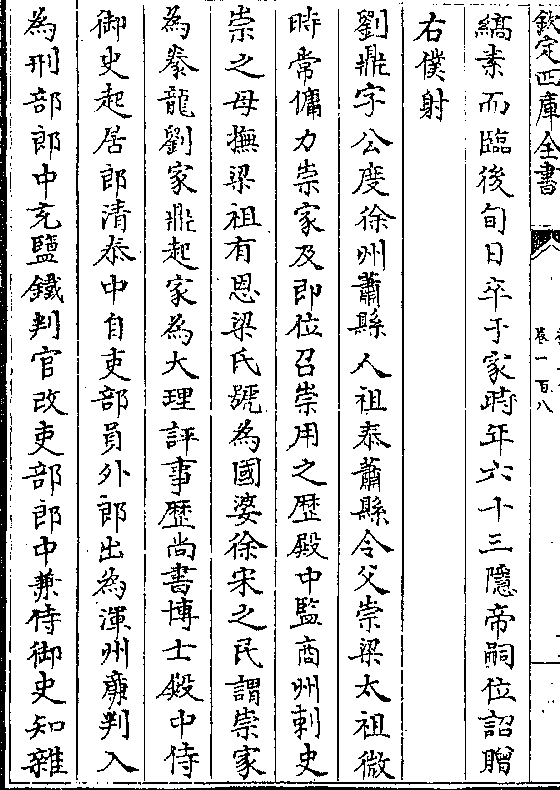 欽定四庫全書
卷一百八
縞素而臨後旬日卒于家時年六十三隱帝嗣位詔贈
右僕射
劉鼎字公度徐州蕭縣人祖泰蕭縣令父崇梁太祖微
時常傭力崇家及即位召崇用之歴殿中監商州刺史
崇之母撫梁祖有恩梁氏號為國婆徐宋之民謂崇家
為豢龍劉家鼎起家為大理評事歴尚書博士殿中侍
御史起居郎清泰中自吏部員外郎出為渾州廉判入
為刑部郎中充鹽鐵判官改吏部郎中兼侍御史知雜